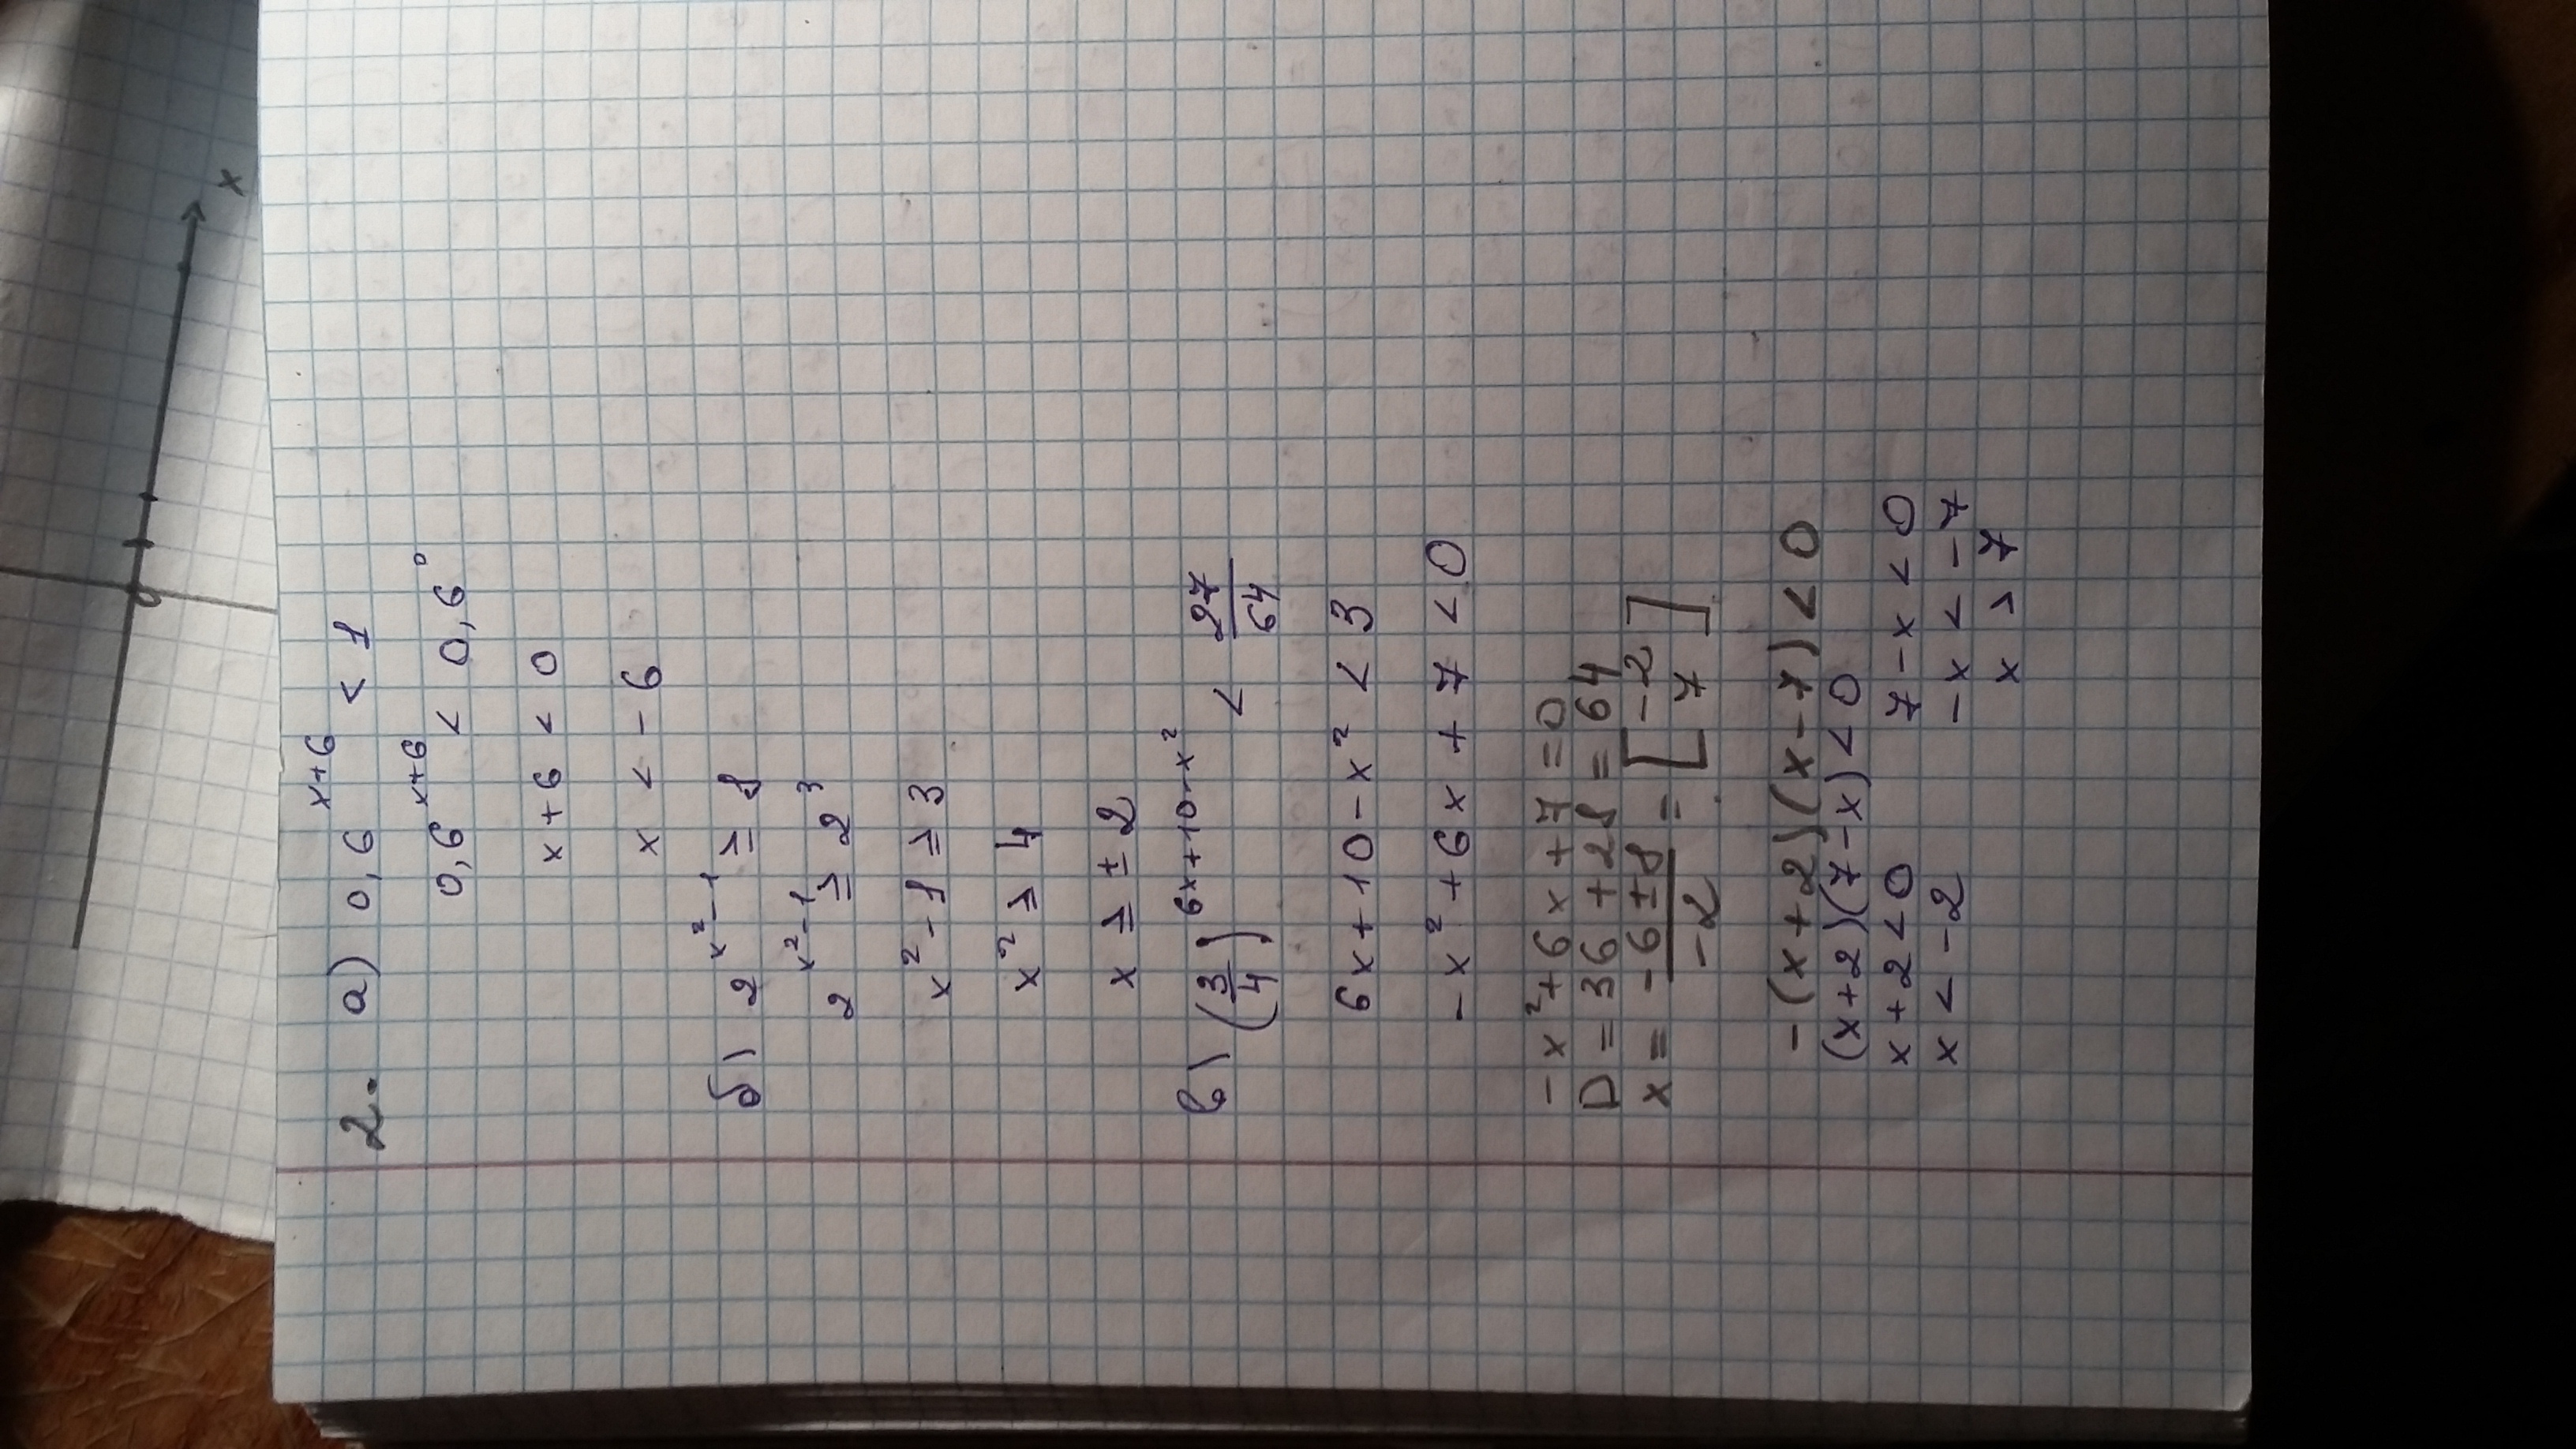 x
0
2. а) 0,6^(x+6) < 1
0,6^(x+6) < 0,6^0
x + 6 < 0
x < - 6
б) 2^(x²-1) ≥ 8
2^(x²-1) ≥ 2³
x² - 1 ≥ 3
x² ≥ 4
x ≥ ± 2
в) (3/4)^(6x+10-x²) < 27/64
6x + 10 - x² < 3
- x² + 6x + 7 < 0
- x² + 6x + 7 = 0
D = 36 + 28 = 64
x = (-6 ± 8)/(-2) = [-2 7]
- (x + 2)(x - 7) < 0
(x + 2)(7 - x) < 0
x + 2 < 0 7 - x < 0
x < -2 - x < -7
x > 7